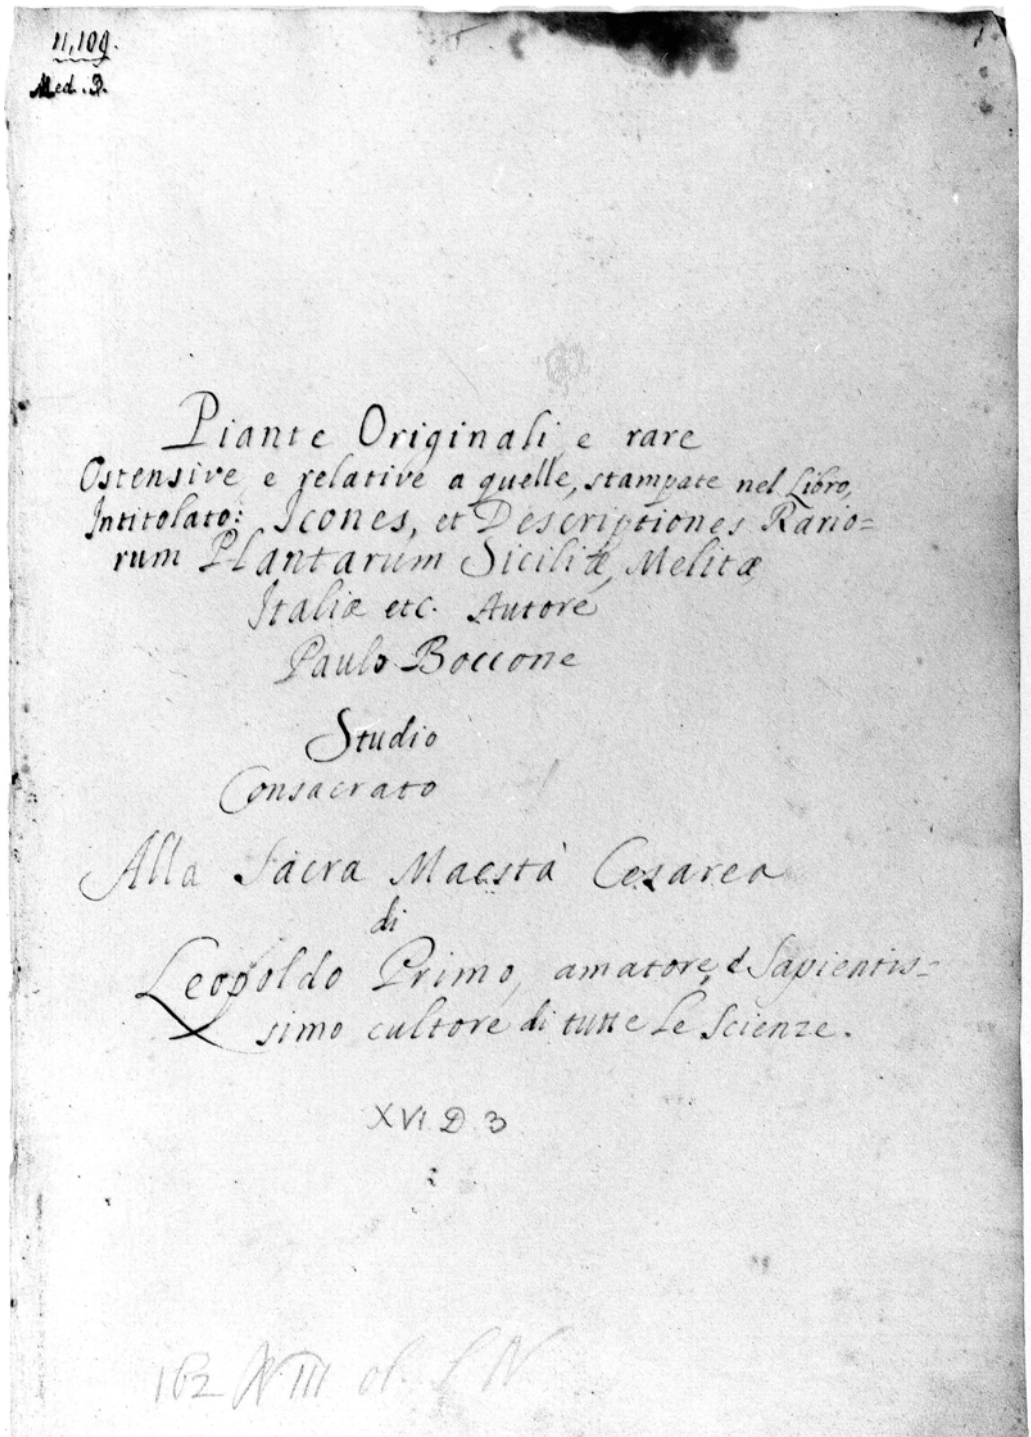 n, 109.
Med. 3.
Piante Originali, e rare
Ostensive, e relative a quelle, stampate nel Libro,
Intitolato: Icones, et Descriptiones Rario=
rum Plantarum Siciliæ, Melitæ,
Italiæ etc. Autore
Paulo Boccone
Studio
Consacrato
Alla Sacra Maestà Cesarea
di
Leopoldo Primo, amatore, e Sapientis=
simo cultore di tutte le Scienze.
XVI. D. 3
2
162 N III